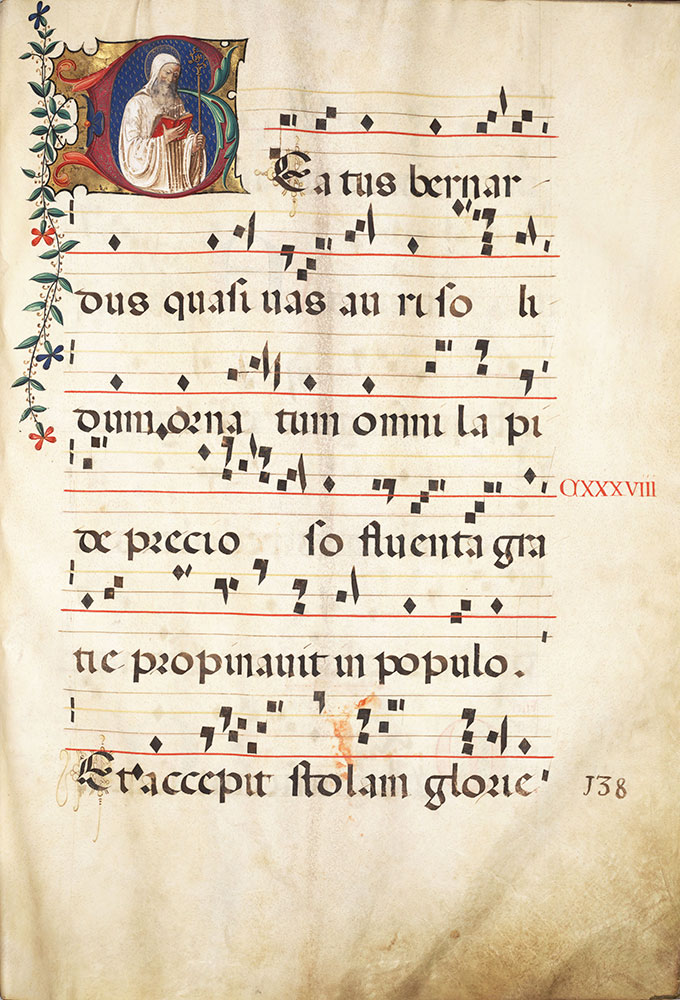 BEatus bernar
dus quasi uas au ri so li
dum orna tum omni la pi
de precio so fluenta gra
CXXXVIII
tie propinauit in populo.
Et accepit stolam glorie
138